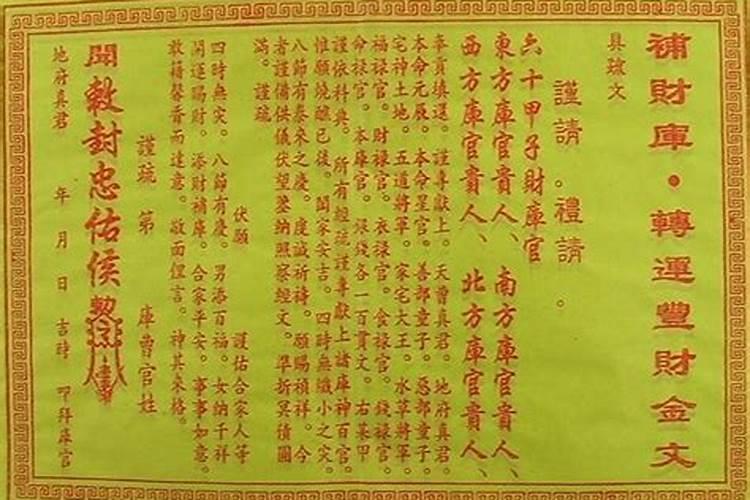 補財庫•轉運豐財金文
具疏文
謹請。禮請。
六十甲子財庫官
東方庫官貴人、南方庫官貴人、
西方庫官貴人、北方庫官貴人、
奉貢填還。謹專獻上。天曹真君。地府真君。
本命元辰。本命星官。善部童子。惡部童子。
宅神土地。五道將軍。家宅大王。水草將軍。
福祿官。財祿官。衣祿官。食祿官。錢祿官。
命祿官。本庫官。銀錢各一百貫文。右某甲
謹依科典。所有經疏謹專獻上諸庫神百官。
惟願燒醮已後。閤家安吉。四時無纖小之灾。
八節有泰來之慶。虔誠祈禱。願賜禎祥。今
者謹備供儀伏望鑒納照察經文。準折冥債圓
滿。謹疏
伏願 謹佑合家人等
四時無灾。八節有慶。男添百福。女納千祥
開運賜財。添財補庫。合家平安。事事如意。
敢藉馨香而達意。敬面俚言。神其來格。
謹疏 第 庫曹官姓
聞敕封忠佑侯
地府真君 年 月 日 吉時 叩拜庫官